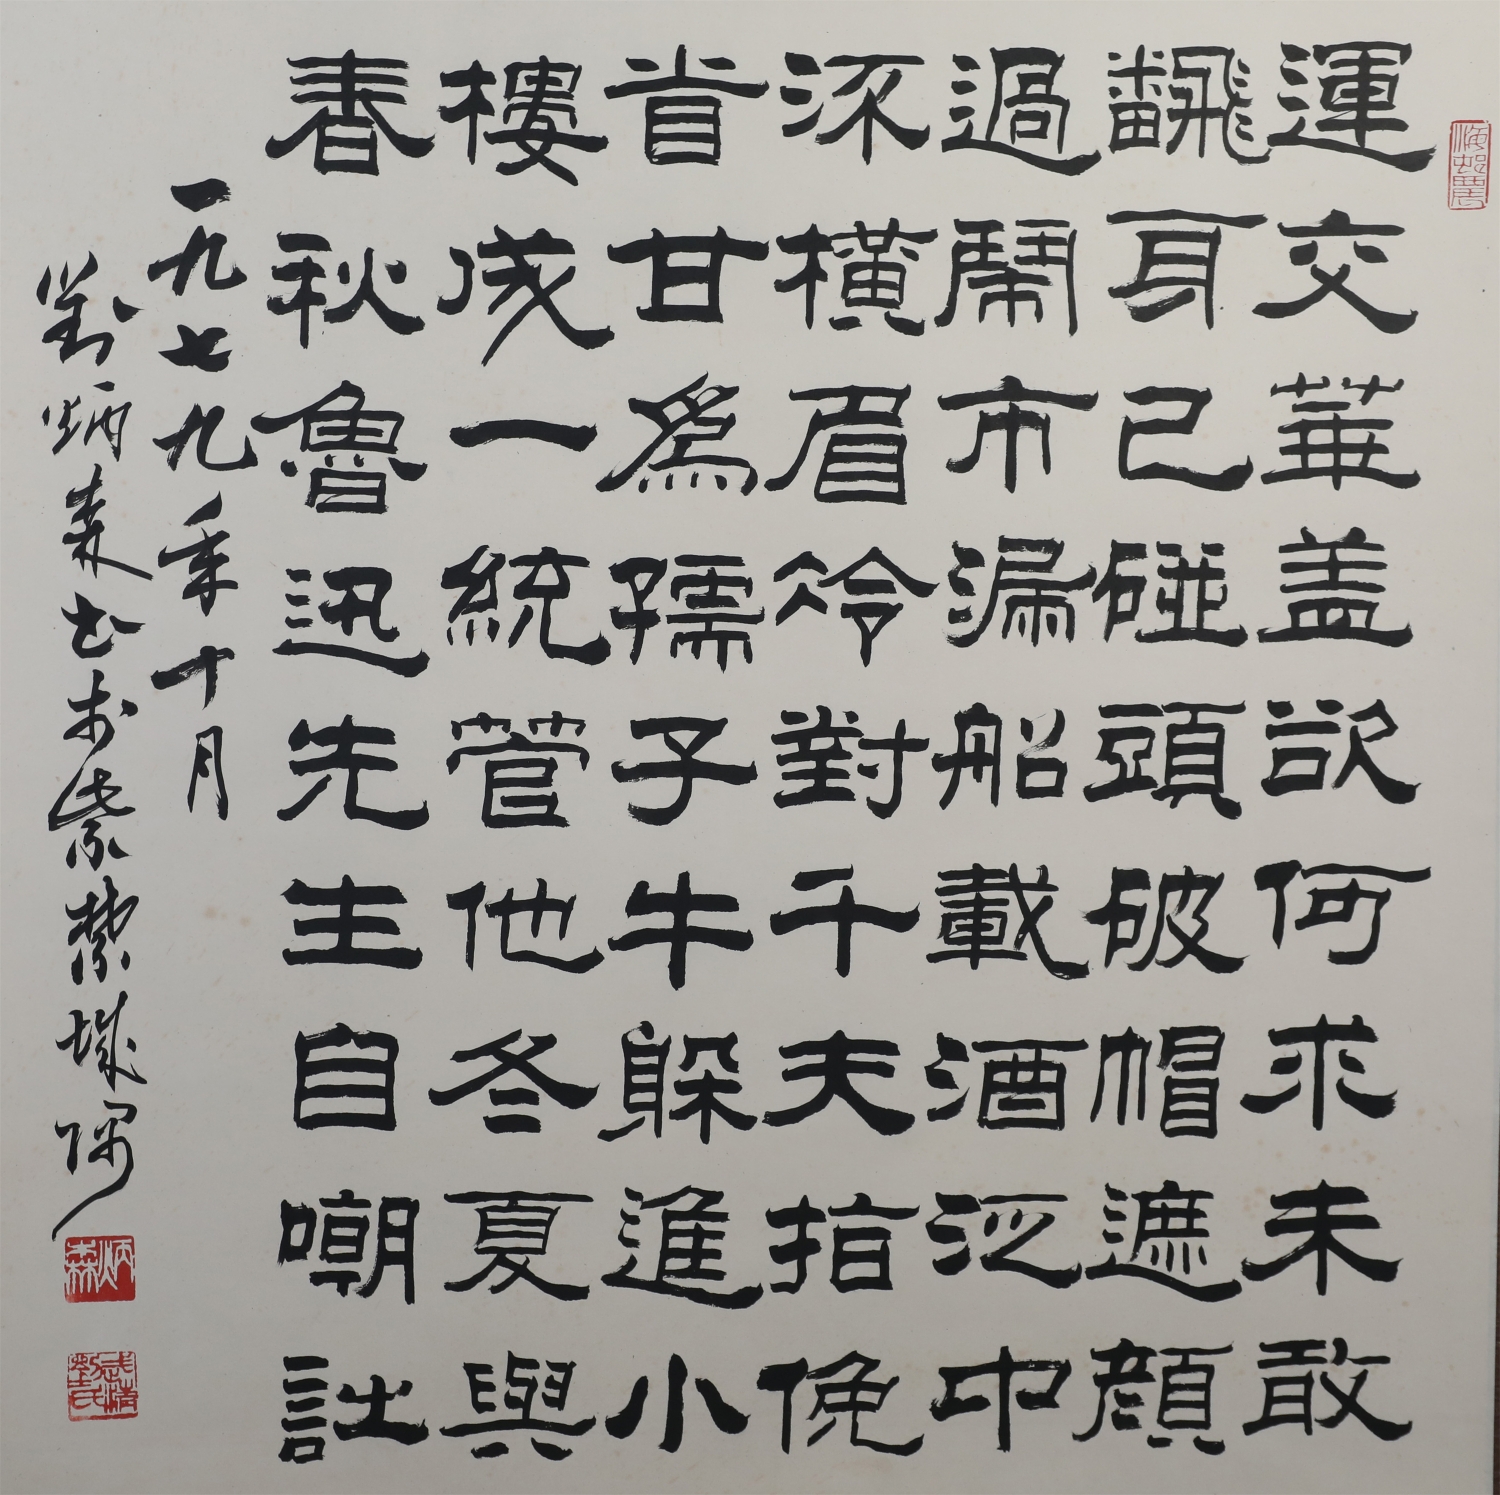 運交華盖欲何求未敢
飜身已碰頭破帽遮顔
過鬧市漏船載酒泛中
流橫眉冷對千夫指俛
首甘爲孺子牛躲進小
樓成一統管他冬夏與
春秋魯迅先生自嘲詩
一九七九年十月
劉炳森書於紫禁城隅
炳森
武清劉氏